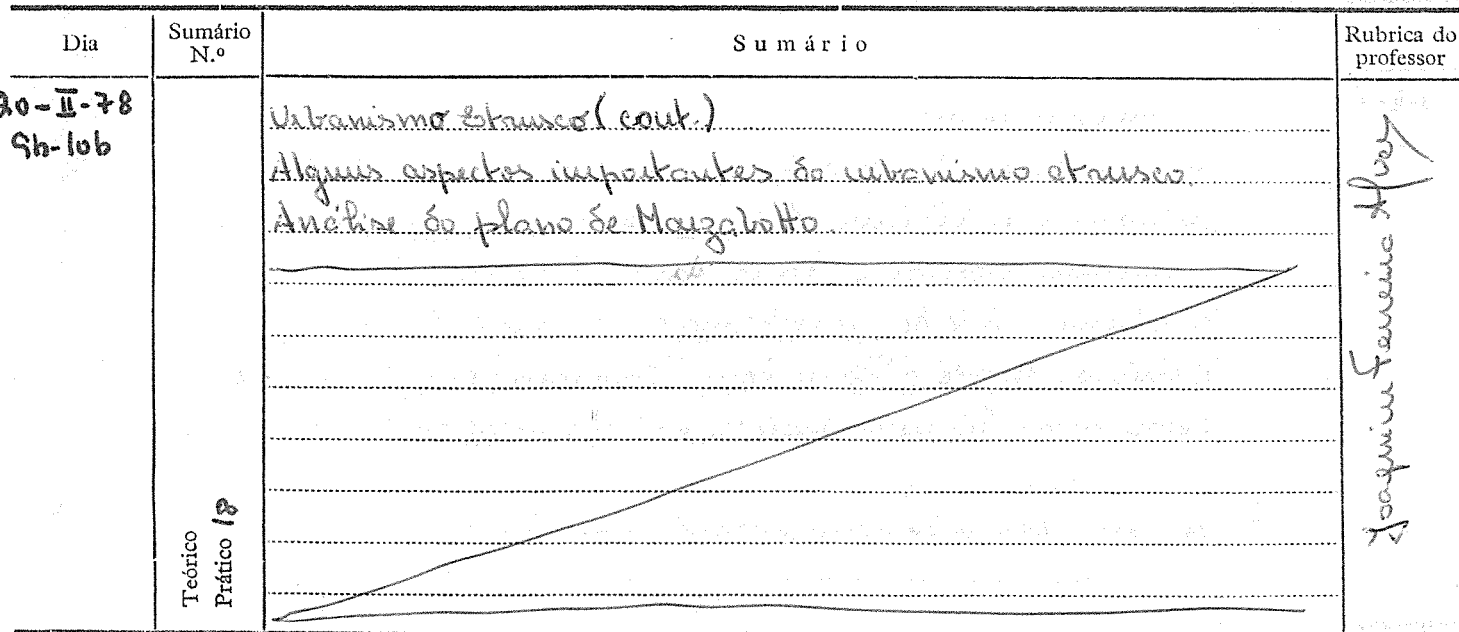 Dia
Sumário N.º
Sumário
Rubrica do professor
20-II-78
9h-10h
Urbanismo Etrusco (cont.)
Alguns aspectos importantes do urbanismo etrusco.
Análise do plano de Marzabotto
Teórico
Prático 18
Joaquim Ferreira Alves